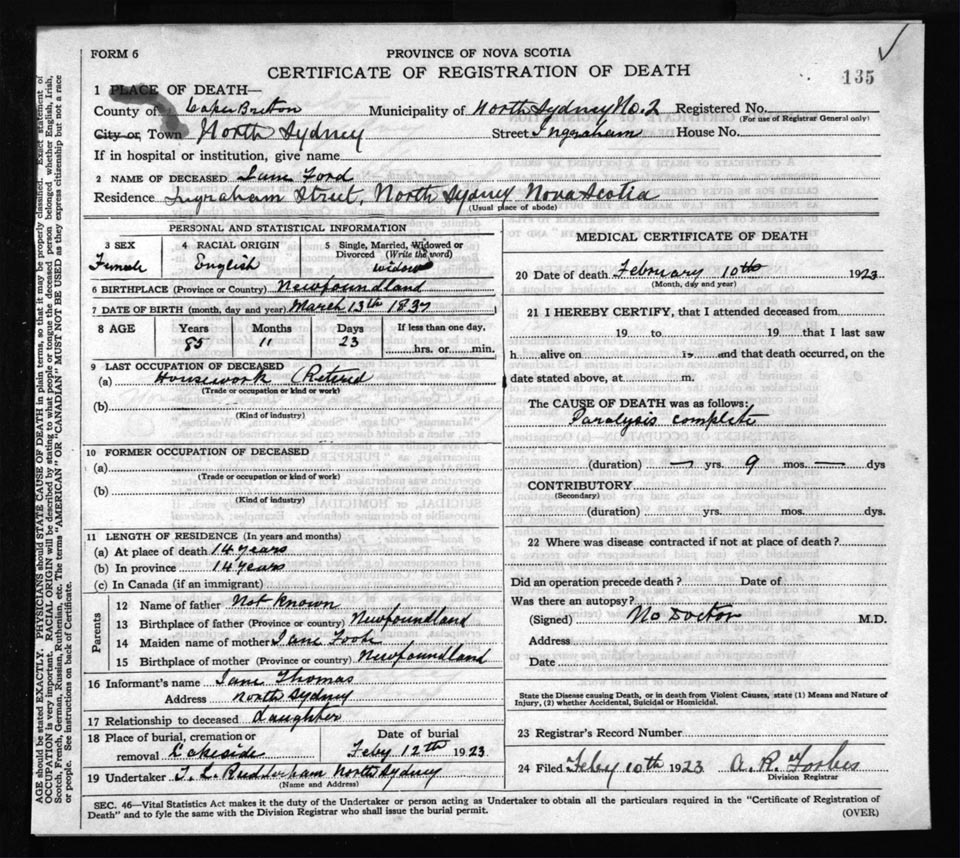 FORM 6
PROVINCE OF NOVA SCOTIA
CERTIFICATE OF REGISTRATION OF DEATH
135
1 PLACE OF DEATH—
County of Cape Breton Municipality of North Sydney No. 2 Registered No.
(For use of Registrar General only)
City or Town North Sydney Street Ingraham House No.
If in hospital or institution, give name
2 NAME OF DECEASED Jane Ford
Residence Ingraham Street, North Sydney Nova Scotia
(Usual place of abode)
PERSONAL AND STATISTICAL INFORMATION
3 SEX 4 RACIAL ORIGIN 5 Single, Married, Widowed or Divorced (Write the word)
Female English widow
6 BIRTHPLACE (Province or Country) Newfoundland
7 DATE OF BIRTH (month, day and year) March 13th 1837
8 AGE Years Months Days If less than one day,
85 11 23 hrs. or min.
9 LAST OCCUPATION OF DECEASED
(a) Housework (Retired
(Trade or occupation or kind of work)
(b)
(Kind of industry)
10 FORMER OCCUPATION OF DECEASED
(a)
(Trade or occupation or kind of work)
(b)
(Kind of industry)
11 LENGTH OF RESIDENCE (In years and months)
(a) At place of death 14 years
(b) In province 14 years
(c) In Canada (if an immigrant)
Parents
12 Name of father Not Known
13 Birthplace of father (Province or country) Newfoundland
14 Maiden name of mother Jane Foote
15 Birthplace of mother (Province or country) Newfoundland
16 Informant's name Jane Thomas
Address North Sydney
17 Relationship to deceased daughter
18 Place of burial, cremation or removal Lakeside
Date of burial
Feby 12th 1923
19 Undertaker T. L. Rudderham North Sydney
(Name and Address)
MEDICAL CERTIFICATE OF DEATH
20 Date of death February 10th 1923
(Month, day and year)
21 I HEREBY CERTIFY, that I attended deceased from
19 to 19 that I last saw
h alive on 19 and that death occurred, on the
date stated above, at m.
The CAUSE OF DEATH was as follows:
Paralysis complete
(duration) — yrs. 9 mos. — dys
CONTRIBUTORY
(Secondary)
(duration) yrs. mos. dys.
22 Where was disease contracted if not at place of death?
Did an operation precede death? Date of
Was there an autopsy?
(Signed) No Doctor M.D.
Address
Date
State the Disease causing Death, or in death from Violent Causes, state (1) Means and Nature of
Injury, (2) whether Accidental, Suicidal or Homicidal.
23 Registrar's Record Number
24 Filed Feby 10th 1923 A. R. Forbes
Division Registrar
SEC. 46—Vital Statistics Act makes it the duty of the Undertaker or person acting as Undertaker to obtain all the particulars required in the "Certificate of Registration of
Death" and to fyle the same with the Division Registrar who shall issue the burial permit.
(OVER)
AGE should be stated EXACTLY. PHYSICIANS should STATE CAUSE OF DEATH in plain terms, so that it may be properly classified. Exact statement of
OCCUPATION is very important. RACIAL ORIGIN will be described by stating to what people or tongue the deceased person belonged whether English, Irish,
Scotch, French, German, Russian, Ruthenian, etc. The terms "AMERICAN" OR "CANADIAN" MUST NOT BE USED as they express citizenship but not a race
or people. See instructions on back of Certificate.